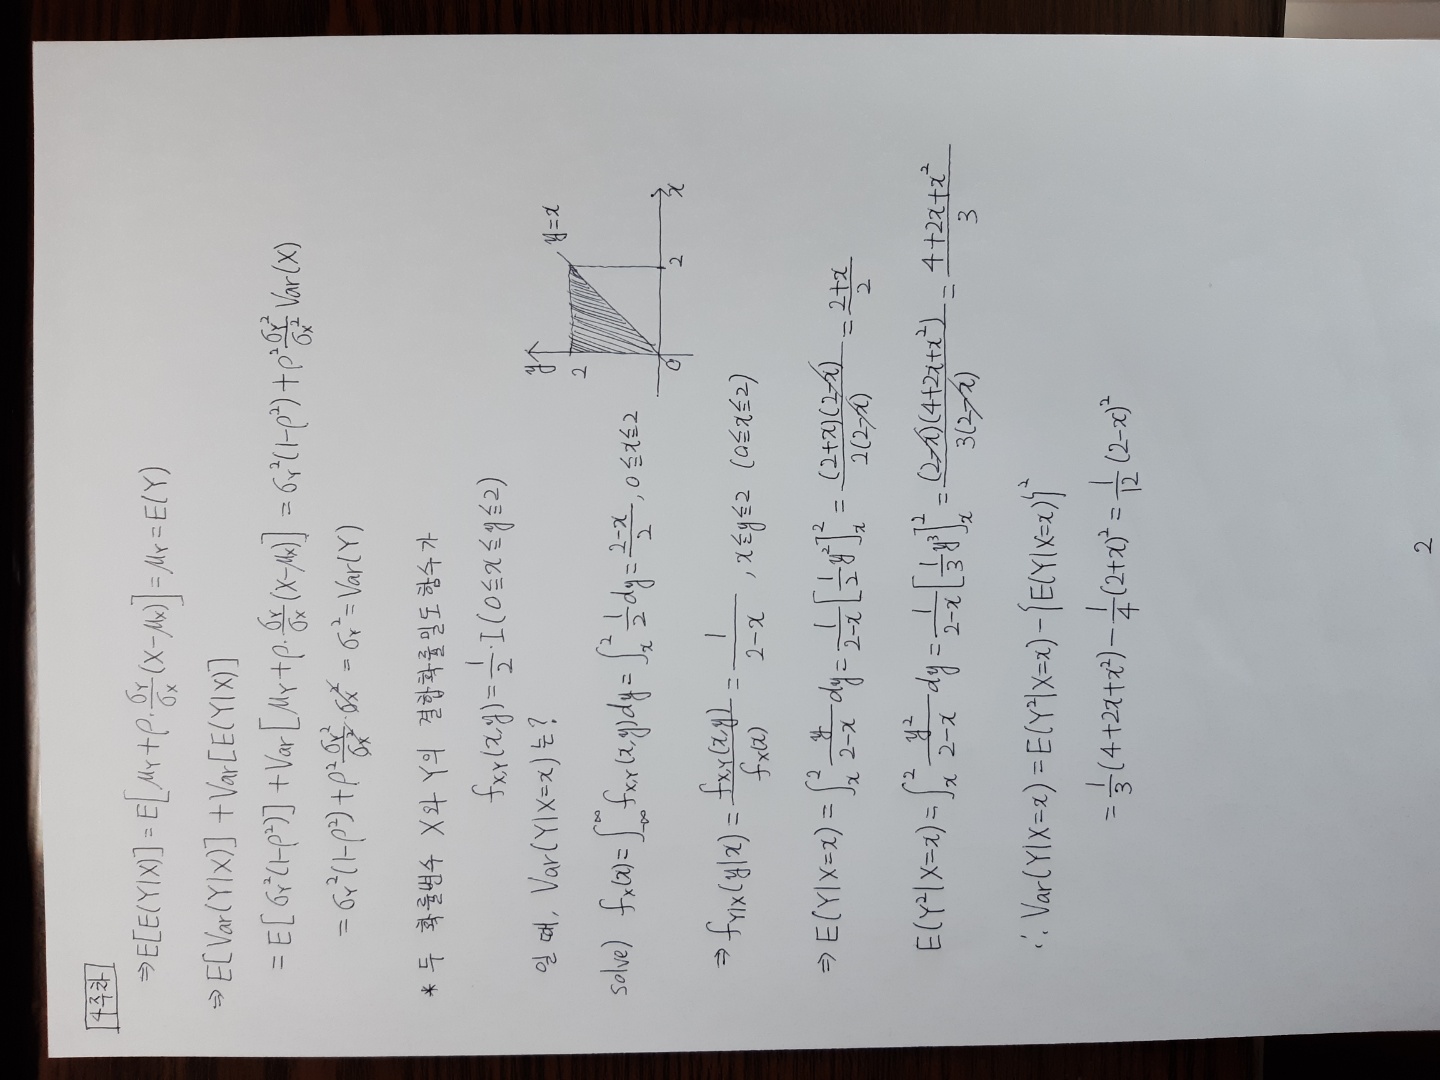 4주차
⇒ E[E(Y|X)] = E[μ_Y + ρ·σ_Y/σ_X (X-μ_X)] = μ_Y = E(Y)
⇒ E[Var(Y|X)] + Var[E(Y|X)]
= E[σ_Y²(1-ρ²)] + Var[μ_Y + ρ·σ_Y/σ_X (X-μ_X)] = σ_Y²(1-ρ²) + ρ² σ_Y²/σ_X² Var(X)
= σ_Y²(1-ρ²) + ρ² σ_Y²/σ_X² · σ_X² = σ_Y² = Var(Y)
* 두 확률변수 X와 Y의 결합확률밀도함수가
f_X,Y(x,y) = 1/2 · I(0≤x≤y≤2)
일 때, Var(Y|X=x)는?
y
2
y=x
0
2
x
solve) f_X(x) = ∫_-∞^∞ f_X,Y(x,y)dy = ∫_x^2 1/2 dy = (2-x)/2, 0≤x≤2
⇒ f_Y|X(y|x) = f_X,Y(x,y)/f_X(x) = 1/(2-x), x≤y≤2 (0≤x≤2)
⇒ E(Y|X=x) = ∫_x^2 y/(2-x) dy = 1/(2-x) [1/2 y²]_x^2 = (2+x)(2-x)/2(2-x) = (2+x)/2
E(Y²|X=x) = ∫_x^2 y²/(2-x) dy = 1/(2-x) [1/3 y³]_x^2 = (2-x)(4+2x+x²)/3(2-x) = (4+2x+x²)/3
∴ Var(Y|X=x) = E(Y²|X=x) - {E(Y|X=x)}²
= 1/3 (4+2x+x²) - 1/4 (2+x)² = 1/12 (2-x)²
2